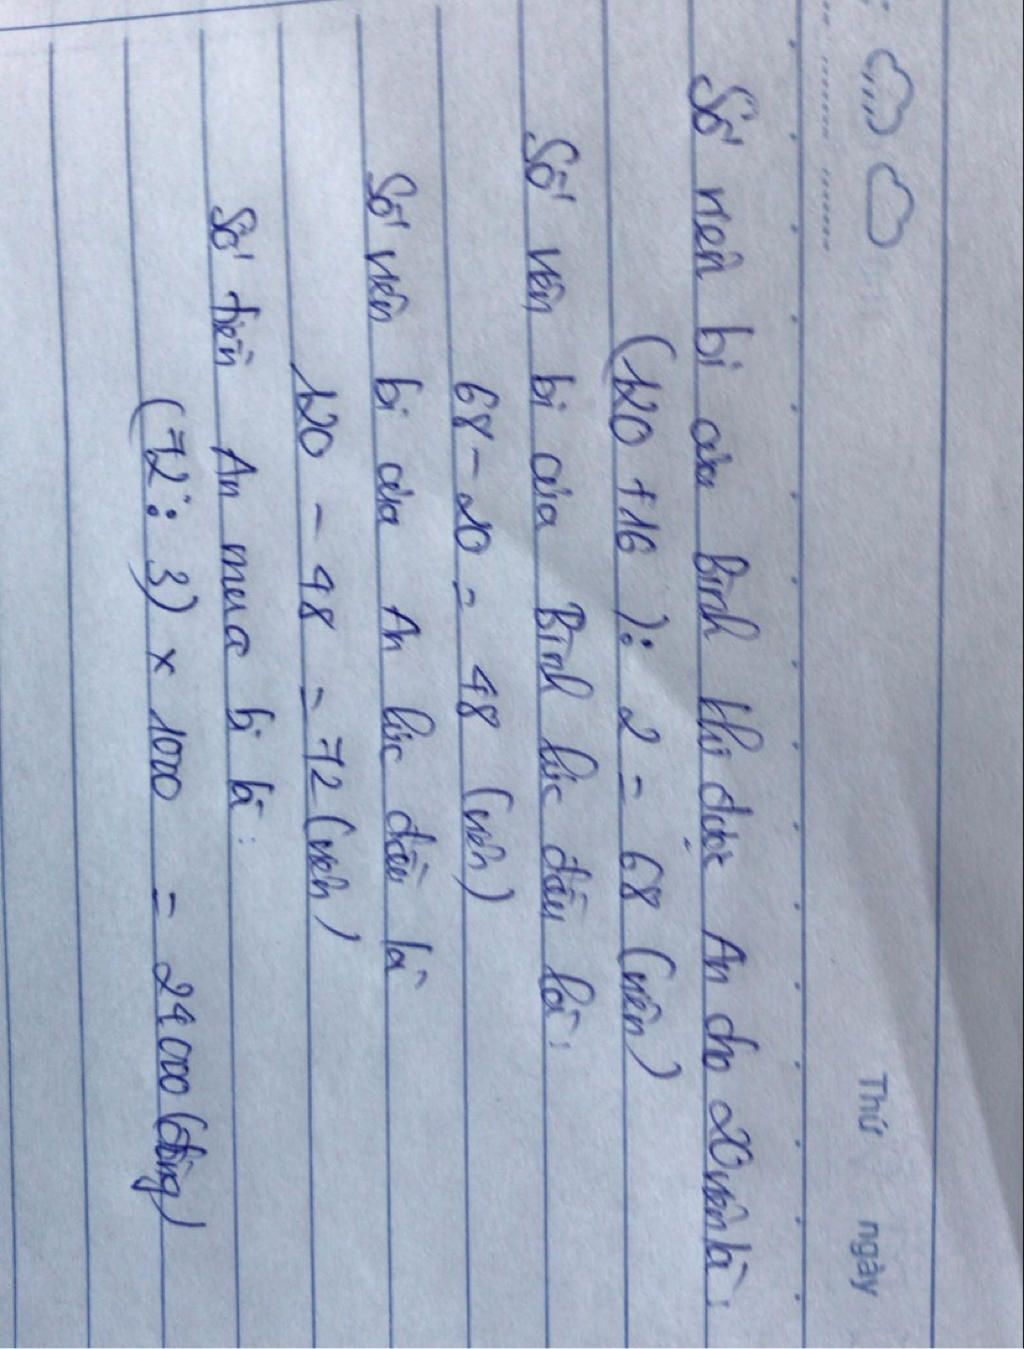 Thứ ngày
Số viên bi của Bình khi được An cho 20 viên là:
(120 + 16) : 2 = 68 (viên)
Số viên bi của Bình lúc đầu là:
68 - 20 = 48 (viên)
Số viên bi của An lúc đầu là
120 - 48 = 72 (viên)
Số tiền An mua bi là:
(72 : 3) × 1000 = 24 000 (đồng)